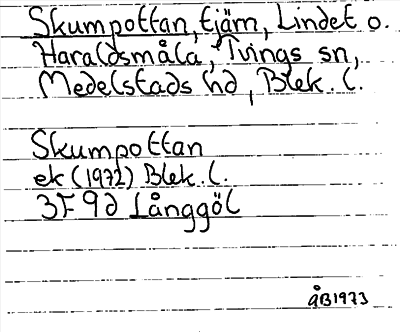 Skumpottan, tjärn, Lindet o.
Haraldsmåla, Tvings sn,
Medelstads hd, Blek. l.
Skumpottan
ek (1972) Blek. l.
3F 9d Långgöl
ÅB1973